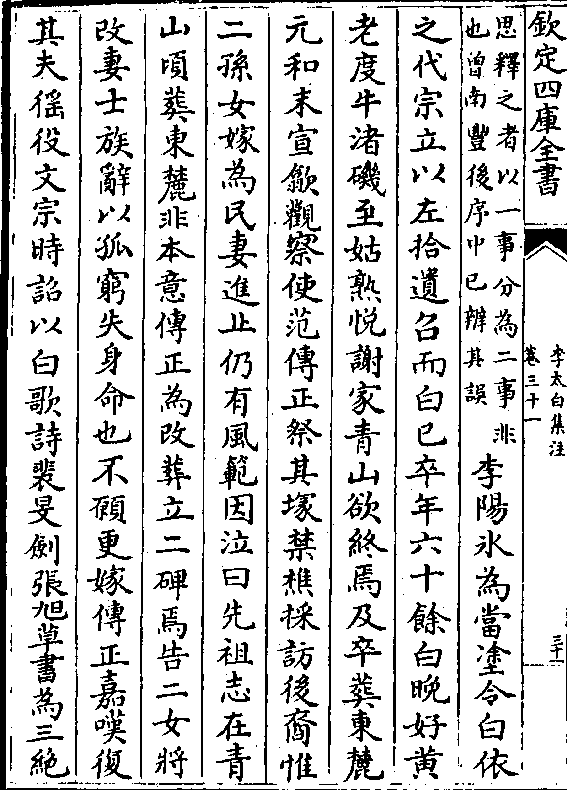 欽定四庫全書
李太白集注
卷三十一
三十一
思釋之者以一事分為二事非
也曾南豐後序中已辨其誤
李陽冰為當塗令白依
之代宗立以左拾遺召而白已卒年六十餘白晚好黄
老度牛渚磯至姑熟悦謝家青山欲終焉及卒葬東麓
元和末宣歙觀察使范傳正祭其塚禁樵採訪後裔惟
二孫女嫁為民妻進止仍有風範因泣曰先祖志在青
山頃葬東麓非本意傳正為改葬立二碑焉告二女將
改妻士族辭以孤窮失身命也不願更嫁傳正嘉嘆復
其夫徭役文宗時詔以白歌詩裴旻劍張旭草書為三絶